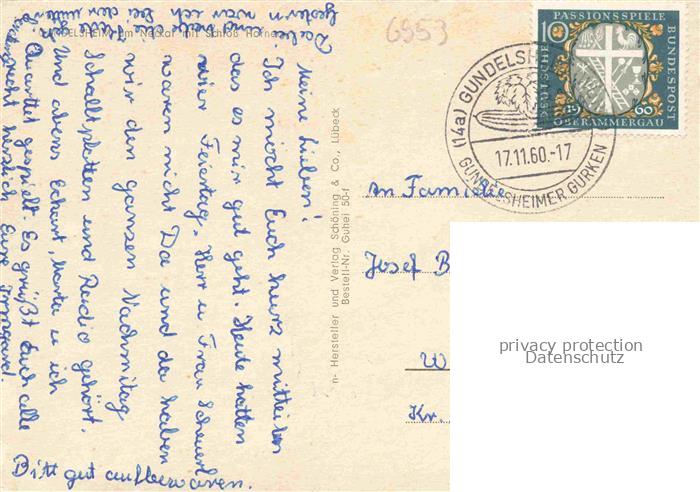 GUNDELSHEIM am Neckar mit Schloß
Meine Lieben!
Ich möcht Euch kurz mitteilen
das es mir gut geht. Heute hatten
wier Feiertag. Herr u Frau
waren nicht Da und da haben
wir den ganzen Nachmitag
Schallplatten und Radio gehört.
Und abens Eckart, Marta u ich
Quartet gespielt. Es grüßt Euch alle
recht herzlich Eure Irmgard.
Bitt gut aufbewaren.
Gestern war ich bei der
n- Hersteller und Verlag Schöning & Co., Lübeck
Bestell-Nr. Guhei 50-f
6953
10
PASSIONSSPIELE
DEUTSCHE BUNDESPOST
1960
OBERAMMERGAU
(14a) GUNDELSHEIM
17.11.60.-17
GUNDELSHEIMER GURKEN
An Familie
Josef B
W
Kr.
privacy protection
Datenschutz